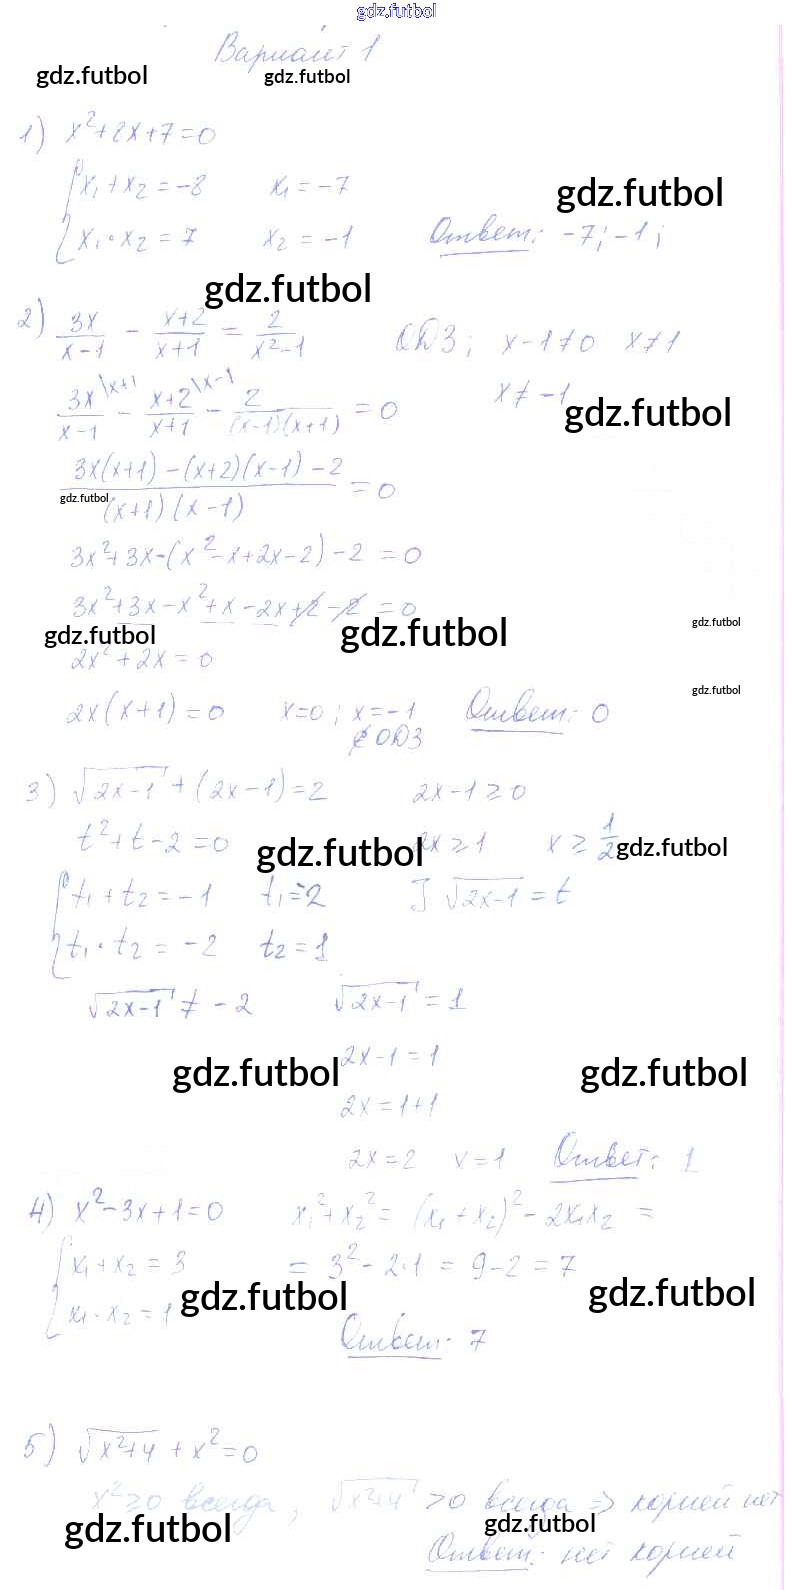 gdz.futbol
Вариант 1
gdz.futbol gdz.futbol
1) x²+2x+7=0
{x₁+x₂=-8 x₁=-7
gdz.futbol
x₁·x₂=7 x₂=-1 Ответ: -7; -1;
gdz.futbol
2) 3x/(x-1) - (x+2)/(x+1) = 2/(x²-1) ОДЗ; x-1≠0 x≠1
3x\x+1/(x-1) - (x+2)\x-1/(x+1) - 2/((x-1)(x+1)) = 0 x≠-1
gdz.futbol
(3x(x+1)-(x+2)(x-1)-2)/((x+1)(x-1)) = 0
gdz.futbol
3x²+3x-(x²-x+2x-2)-2=0
3x²+3x-x²+x-2x+2-2=0
gdz.futbol gdz.futbol gdz.futbol
2x²+2x=0
gdz.futbol
2x(x+1)=0 x=0; x=-1 Ответ: 0
∉ ОДЗ
3) √(2x-1)+(2x-1)=2 2x-1≥0
t²+t-2=0 2x≥1 x≥1/2
gdz.futbol gdz.futbol
{t₁+t₂=-1 t₁=-2 ] √(2x-1)=t
t₁·t₂=-2 t₂=1
√(2x-1)≠-2 √(2x-1)=1
2x-1=1
gdz.futbol gdz.futbol
2x=1+1
2x=2 x=1 Ответ: 1
4) x²-3x+1=0 x₁²+x₂²=(x₁+x₂)²-2x₁x₂=
{x₁+x₂=3 =3²-2·1=9-2=7
x₁·x₂=1
gdz.futbol gdz.futbol
Ответ: 7
5) √(x²+4)+x²=0
x²≥0 всегда, √(x²+4)>0 всегда ⇒ корней нет
gdz.futbol gdz.futbol
Ответ: нет корней